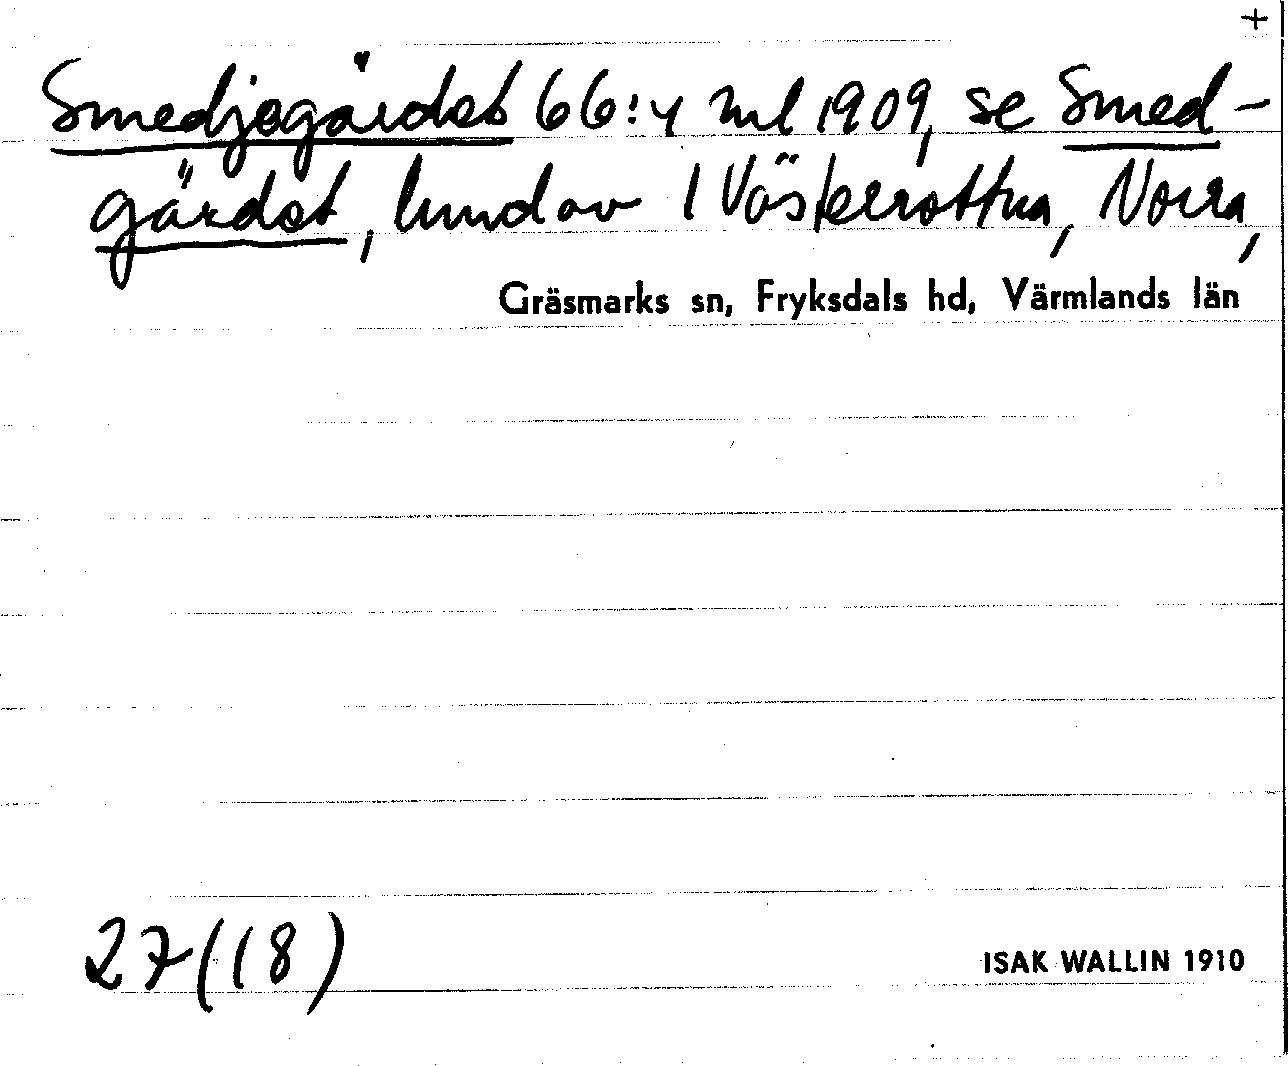 +
Smedjegärdet 66:4 ml 1909, se Smed-
gärdet, lund av 1 Västerrottna, Norra,
Gräsmarks sn, Fryksdals hd, Värmlands län
27 (18)
ISAK WALLIN 1910